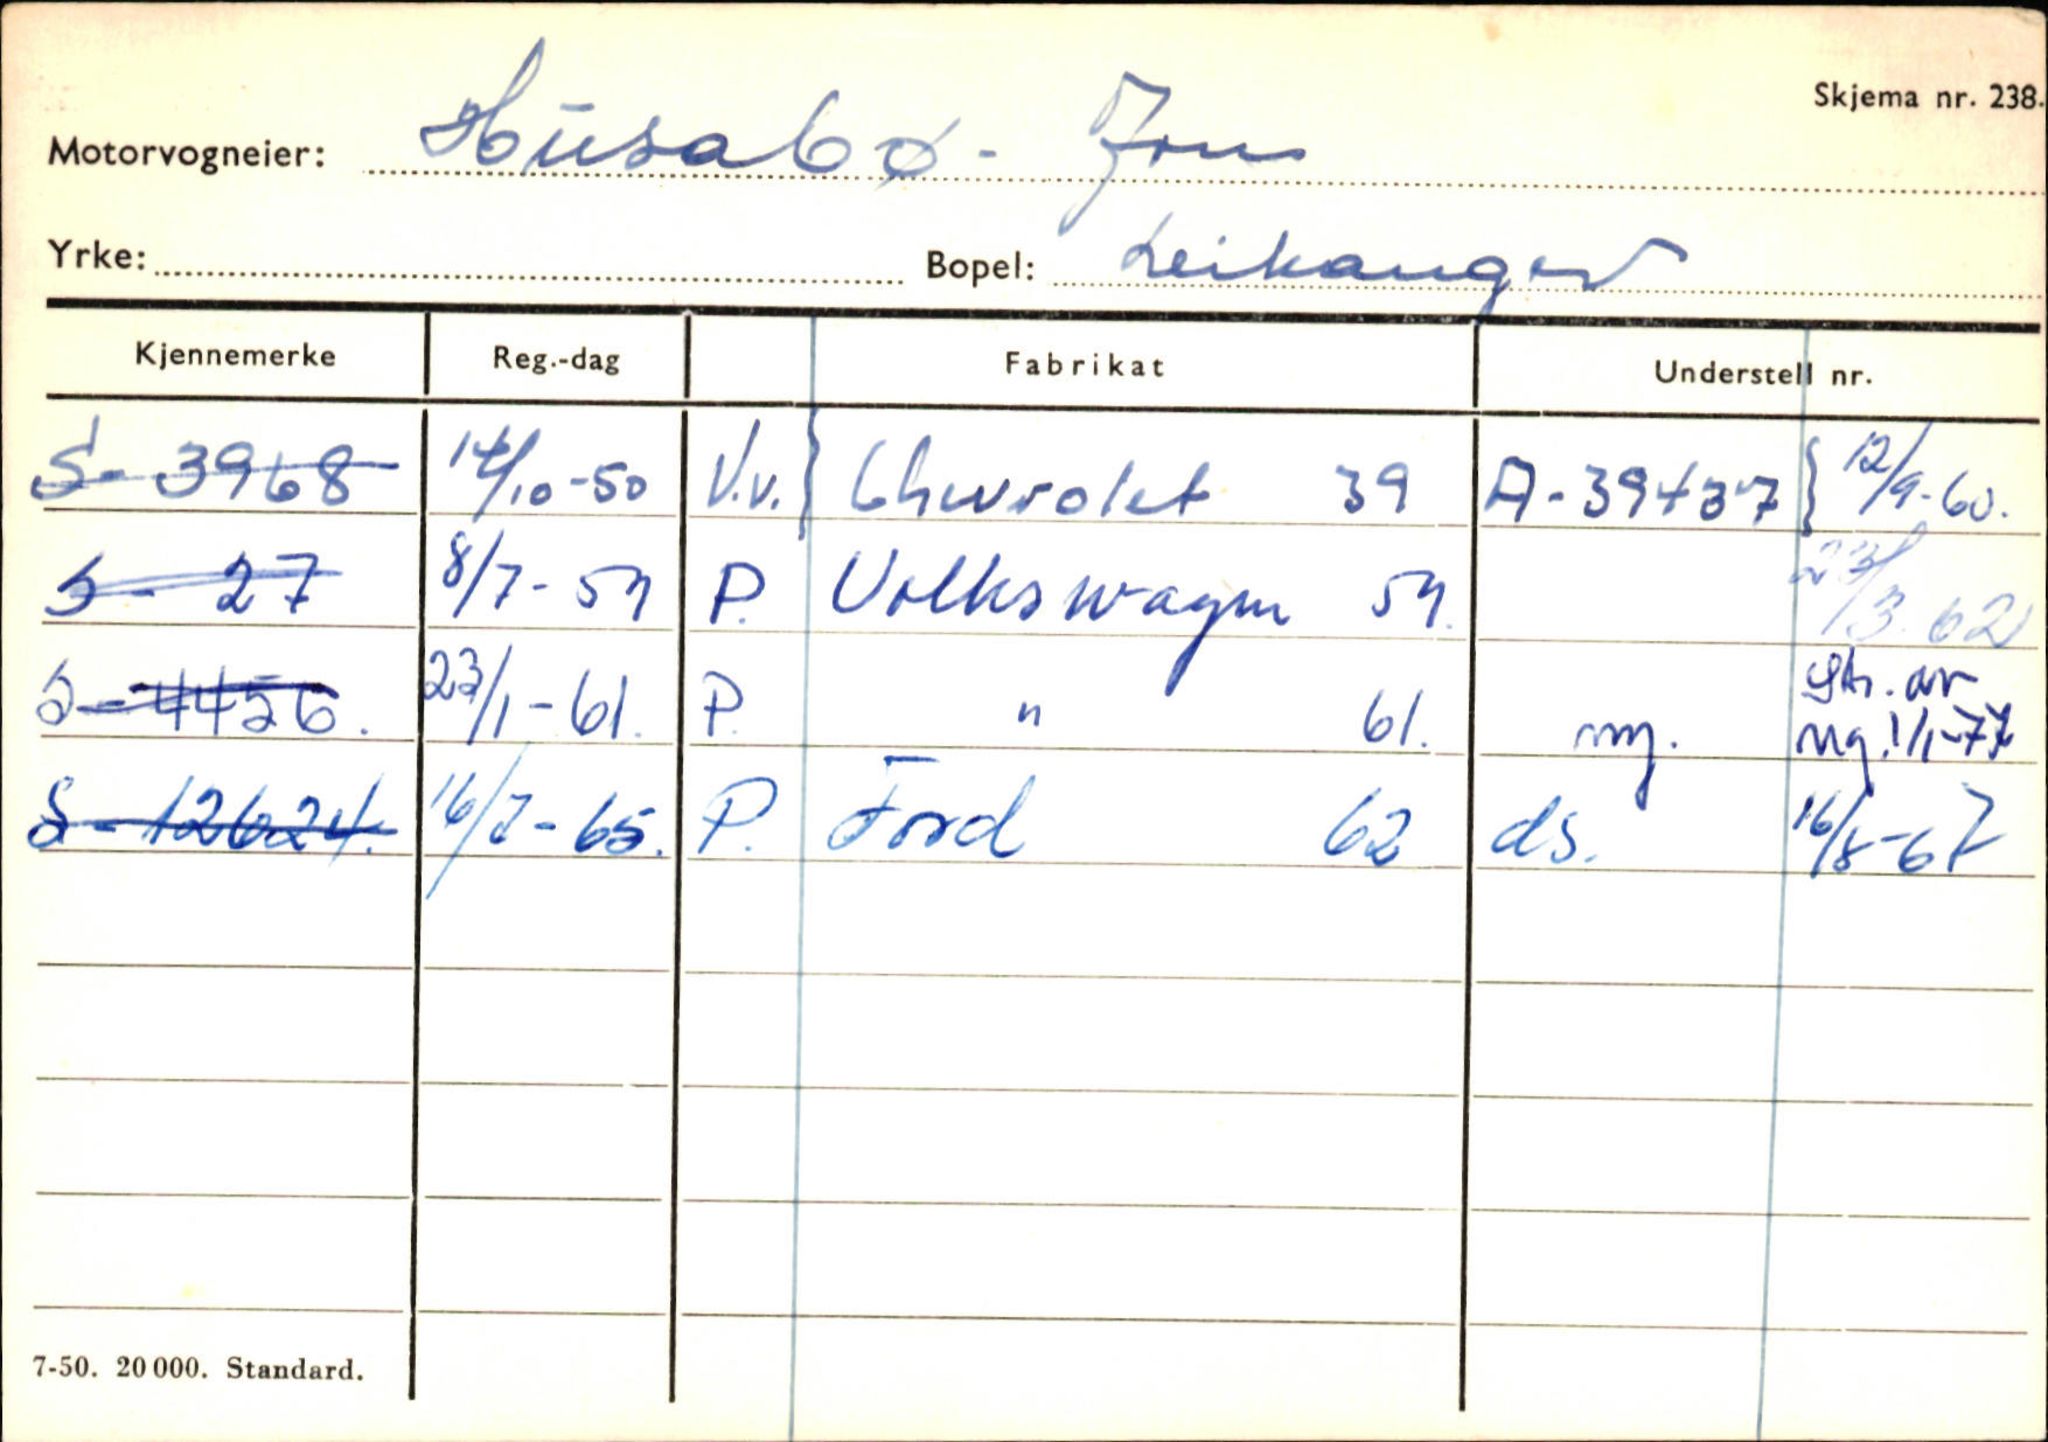 Skjema nr. 238.
Motorvogneier: Husabø - Jon
Yrke: Bopel: Leikanger
Kjennemerke Reg.-dag Fabrikat Understell nr.
S - 3968 14/10-50 V.v. } Chevrolet 39 A-39437 } 12/9-60.
S - 27 8/7-54 P. Volkswagen 54. 23/3.62
S - 4456. 23/1-61. P. " 61. ny. Str. av
reg. 1/1-77
S - 12624. 16/7-65. P. Ford 62 ds. 16/8-67
7-50. 20 000. Standard.